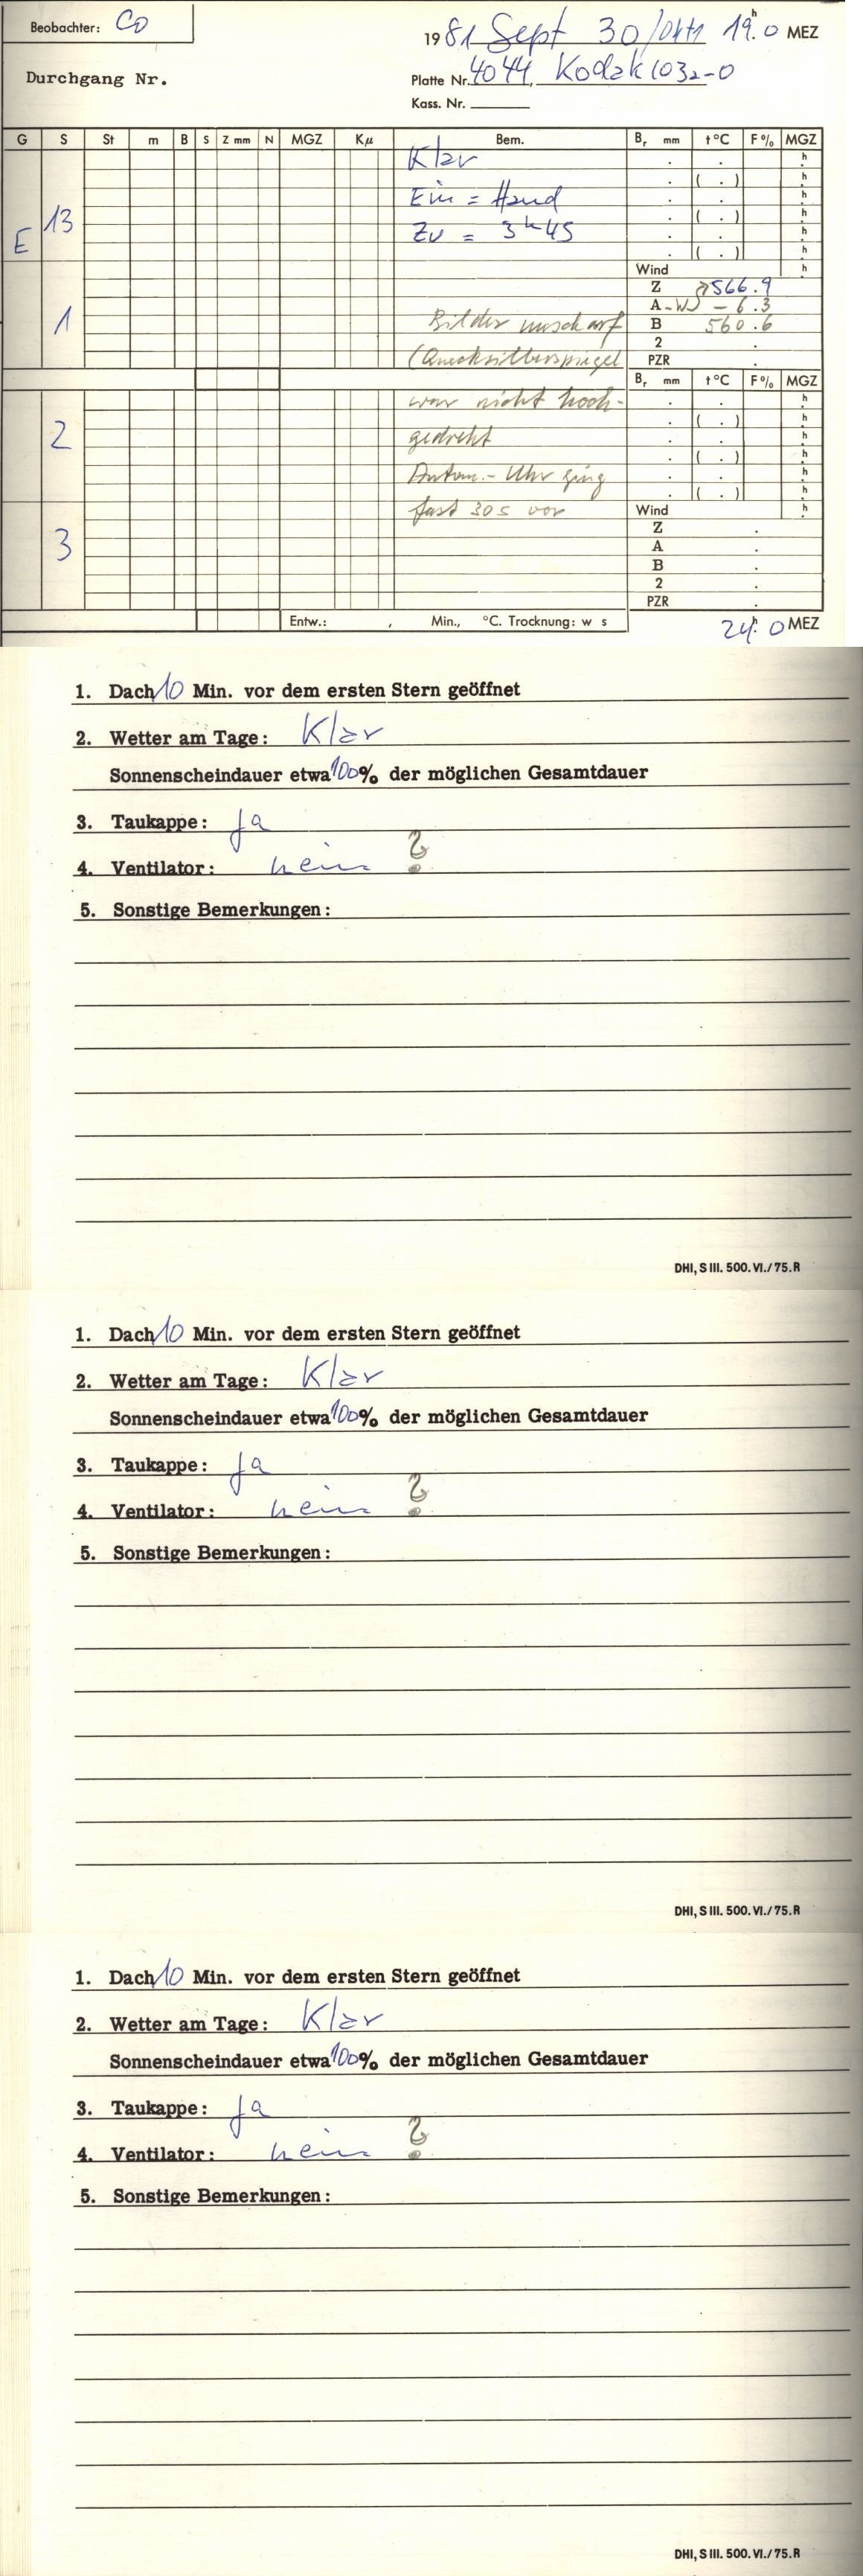 Beobachter: CO
1981 Sept 30/Okt1 19h.0 MEZ
Durchgang Nr.
Platte Nr. 4044, Kodak 103a-O
Kass. Nr.
G S St m B S Z mm N MGZ Kμ Bem. Br mm t°C F% MGZ
Klar . . h
( . )
h
13 Ein = Hand . . h
( . ) h
E Zu = 3h45 . . h
( . ) h
Wind h
Z 566.9
1 A-W - 6.3
Bilder unscharf B 560.6
2 .
(Quecksilberspiegel PZR .
Br mm t°C F% MGZ
war nicht hoch- . . h
( . ) h
2 gedreht . . h
( . ) h
Autom.- Uhr ging . . h
( . ) h
fast 30s vor Wind h
Z .
3 A .
B .
2 .
PZR .
Entw.: , Min., °C. Trocknung: w s
24h.0 MEZ
1. Dach 10 Min. vor dem ersten Stern geöffnet
2. Wetter am Tage: Klar
Sonnenscheindauer etwa 100% der möglichen Gesamtdauer
3. Taukappe: ja
4. Ventilator: nein ?
5. Sonstige Bemerkungen:
DHI, S III. 500. VI./75. R
1. Dach 10 Min. vor dem ersten Stern geöffnet
2. Wetter am Tage: Klar
Sonnenscheindauer etwa 100% der möglichen Gesamtdauer
3. Taukappe: ja
4. Ventilator: nein ?
5. Sonstige Bemerkungen:
DHI, S III. 500. VI./75. R
1. Dach 10 Min. vor dem ersten Stern geöffnet
2. Wetter am Tage: Klar
Sonnenscheindauer etwa 100% der möglichen Gesamtdauer
3. Taukappe: ja
4. Ventilator: nein ?
5. Sonstige Bemerkungen:
DHI, S III. 500. VI./75. R